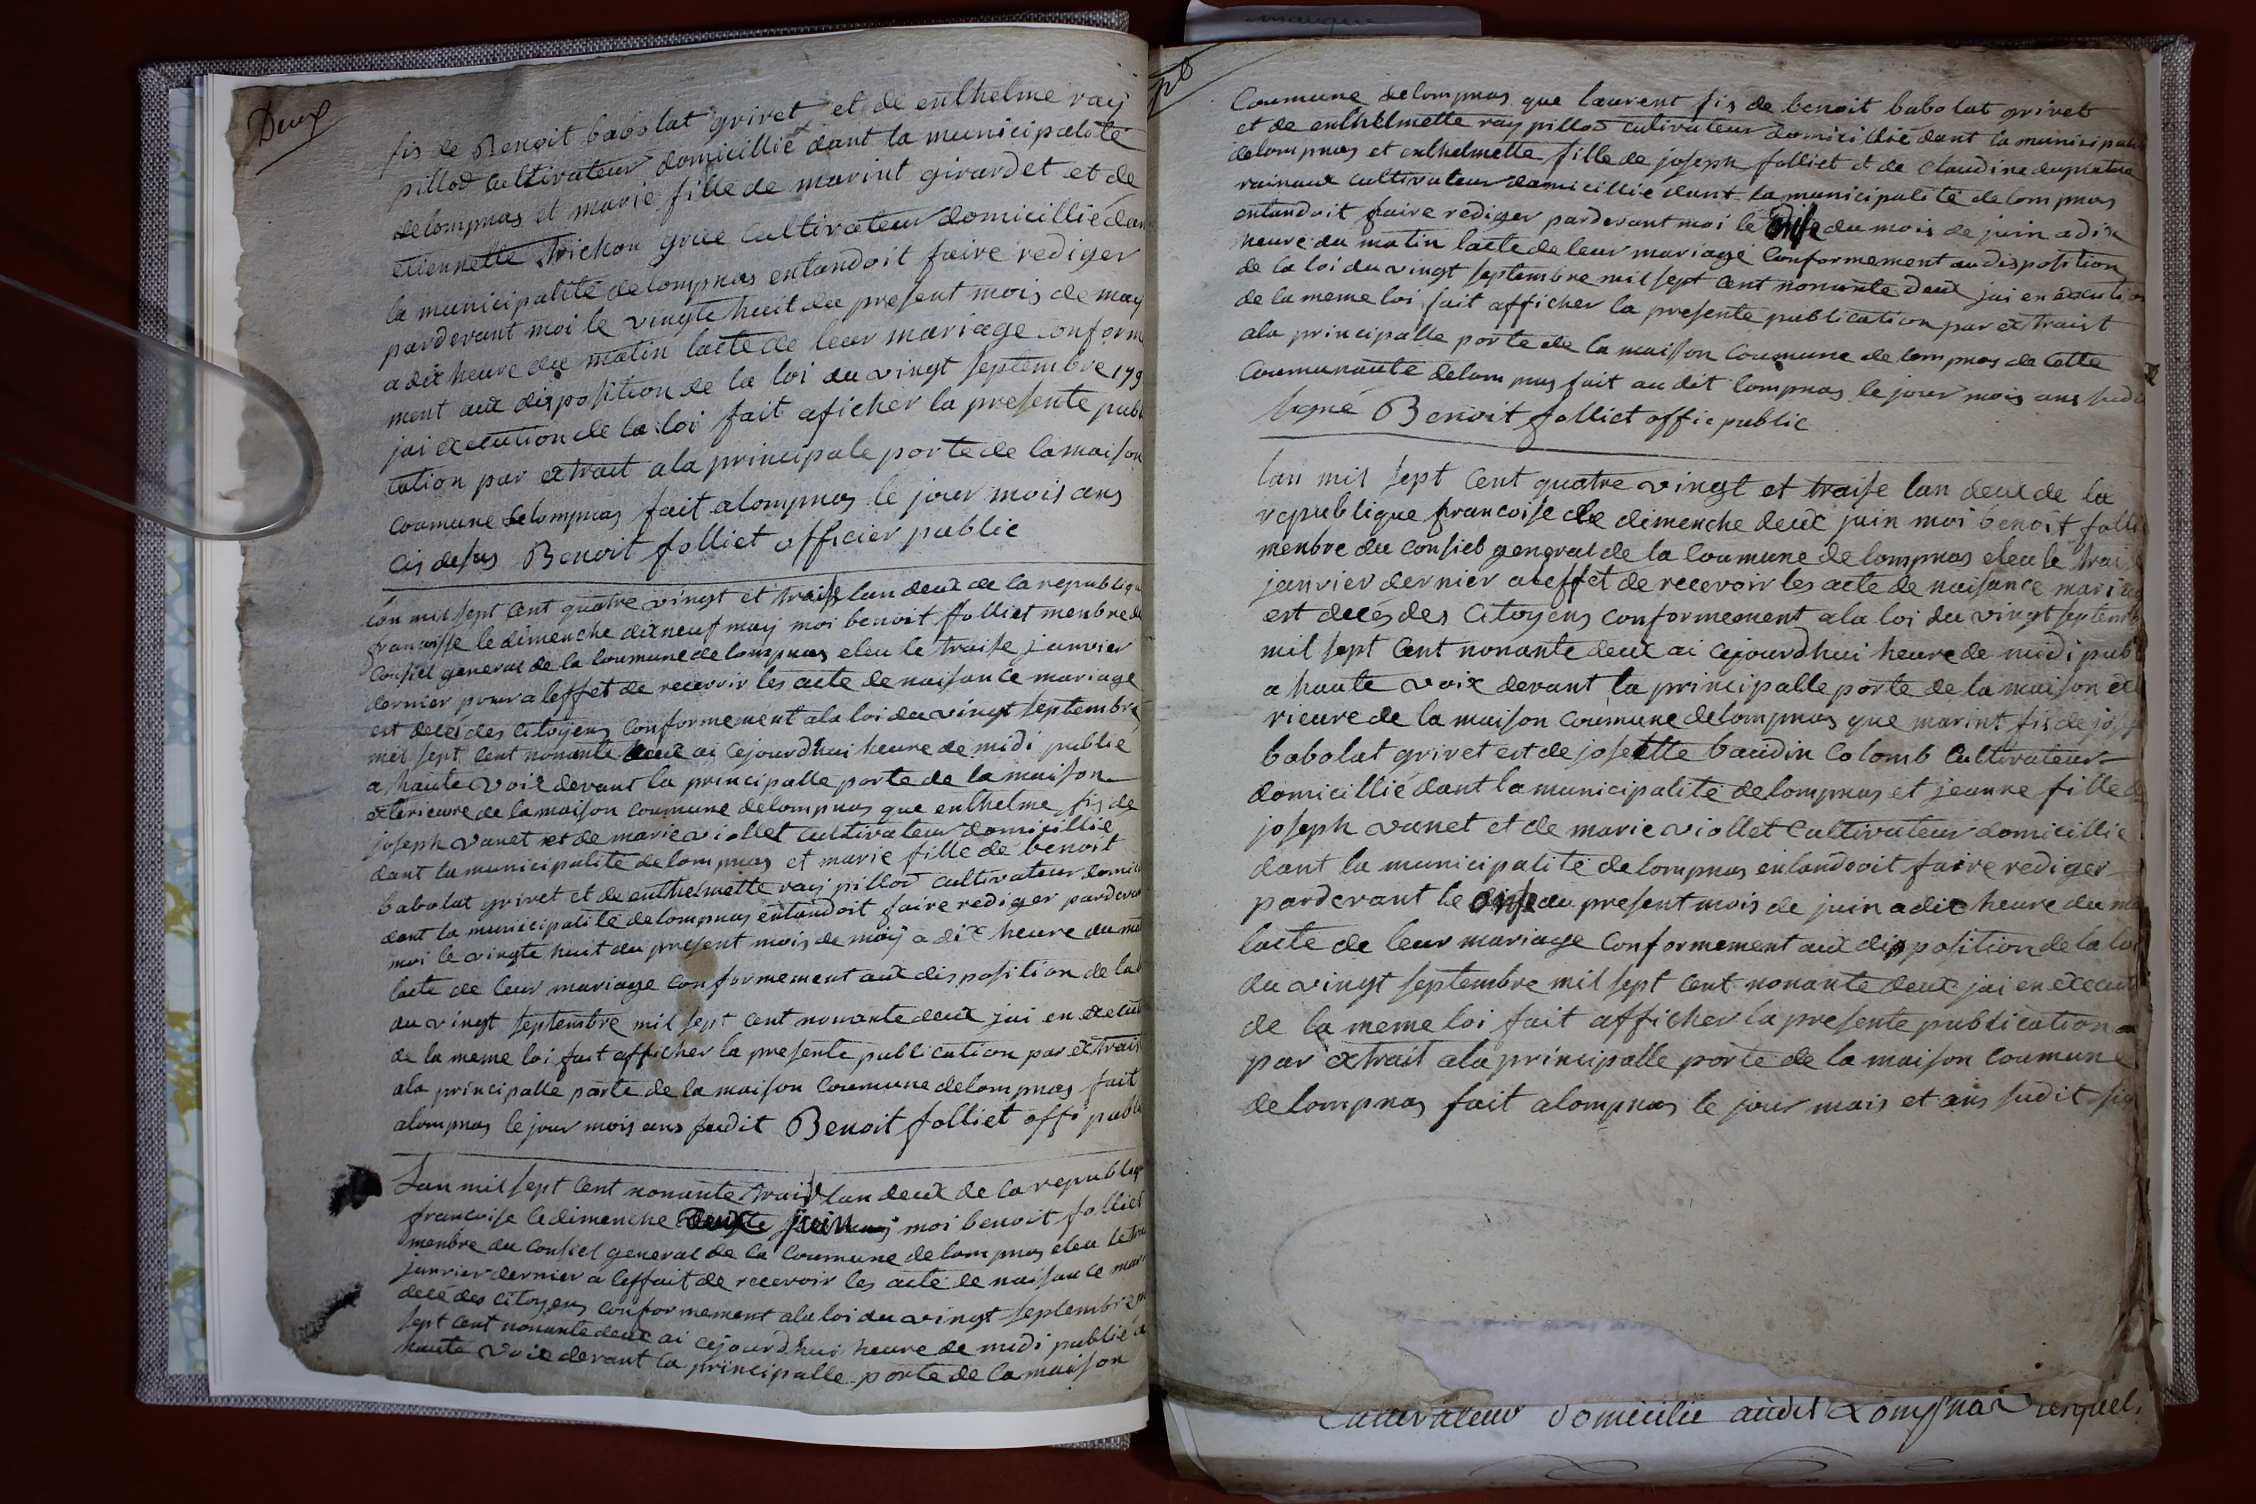 Deux
fis de Benoit babolat grivet et de enthelme raij
pillod cultivateur domicillié dant la municipalité
delompnas et marie fille de marint girardet et de
etiennette trichon grice cultivateur domicillié dan
la municipalité delompnas entandoit faire rediger
parderant moi le vingte huit du present mois de may
a dix heure du matin lacte de leur mariage conform
ment aux disposition de la loi du vingt septembre 179
jai execution de la loi fait aficher la presente publ
cation par extrait ala principale porte de lamaison
coumune delompnas fait alompnas le jour mois ans
cis desus Benoit folliet officier public
lan mil sept cent quatre vingt et traise lan deux de la republiq
francoisse le dimenche dix neuf maij moi benoit folliet menbre d
Consiel general de la Coumune de lompnas eleu le traise janvier
dernier pour a leffet de recevoir les acte de naisance mariage
est decés des citoyens conformement ala loi du vingt septembre
mil sept cent nonante deux ai cejourdhui heure de midi publié
a haute voix devant la principalle porte de la maison
exterieure de lamaison coumune delompnas que enthelme fis de
joseph vanet et de marie viollet cultivateur domicillié
dant la municipalité delompnas et marie fille de benoit
babolat grivet et de enthelmette raij pillod cultivateur domici
dant la municipalité delompnas entandoit faire rediger parderan
moi le vingte huit du present mois de maij a dix heure du ma
lacte de leur mariage conformement aux disposition de la l
du vingt septembre mil sept cent nonante deux jai en executi
de la meme loi fait afficher la presente publication par extrait
ala principalle porte de la maison Coumune delompnas fait
alompnas le jour mois ans sudit Benoit folliet offi publi
Lan mil sept cent nonante trais lan deux de la republiq
francoise le dimenche deux juin moi benoit folliet
menbre du Consiel general de la Coumune de lompnas eleu le tra
janvier dernier a leffait de recevoir les acte de naisance mari
decé des citoyens conformement ala loi du vingt septembre m
sept cent nonante deux ai cejourdhui heure de midi publié a
haute voix devant la principalle porte de la maison
Coumune delompnas que laurent fis de benoit babolat grivet
et de enthelmette raij pillod cultivateur domicillié dant la municipalit
delompnas et enthelmette fille de joseph folliet et de Claudine dupratre
rainaux cultivateur domicillié dant la municipalité delompnas
entandoit faire rediger parderant moi le onse du mois de juin a dix
heure du matin lacte de leur mariage Conformement au disposition
de la loi du vingt septembre mil sept cent nonante deux jai en execution
de la meme loi fait afficher la presente publication par extrait
ala principalle porte de la maison Coumune de lompnas de cette
Coumunauté delompnas fait au dit lompnas le jour mois ans sudi
signé Benoit folliet offic public
lan mil sept Cent quatre vingt et traise lan deux de la
republique francoise le dimenche deux juin moi benoit folli
menbre du Consiel general de la Coumune de lompnas eleu le trais
janvier dernier a leffet de recevoir les acte de naisance mariag
est decés des Citoyens conformement ala loi du vingt septemb
mil sept Cent nonante deux ai cejourdhui heure de midi publ
a haute voix devant la principalle porte de la maison ext
rieure de la maison Coumune delompnas que marint fis de jose
babolat grivet est de josettte baudin Colomb Cultivateur
domicillié dant la municipalité delompnas et jeanne fille d
joseph vanet et de marie viollet Cultivateur domicillié
dant la municipalité delompnas entandoit faire rediger
parderant le onse du present mois de juin a dix heure du ma
lacte de leur mariage Conformement aux disposition de la loi
du vingt septembre mil sept Cent nonante deux jai en execut
de la meme loi fait afficher la presente publication
par extrait ala principalle porte de la maison Coumune
delompnas fait alompnas le jour mais et ans sudit sig
Cultivateur domicilié audit Lompnas